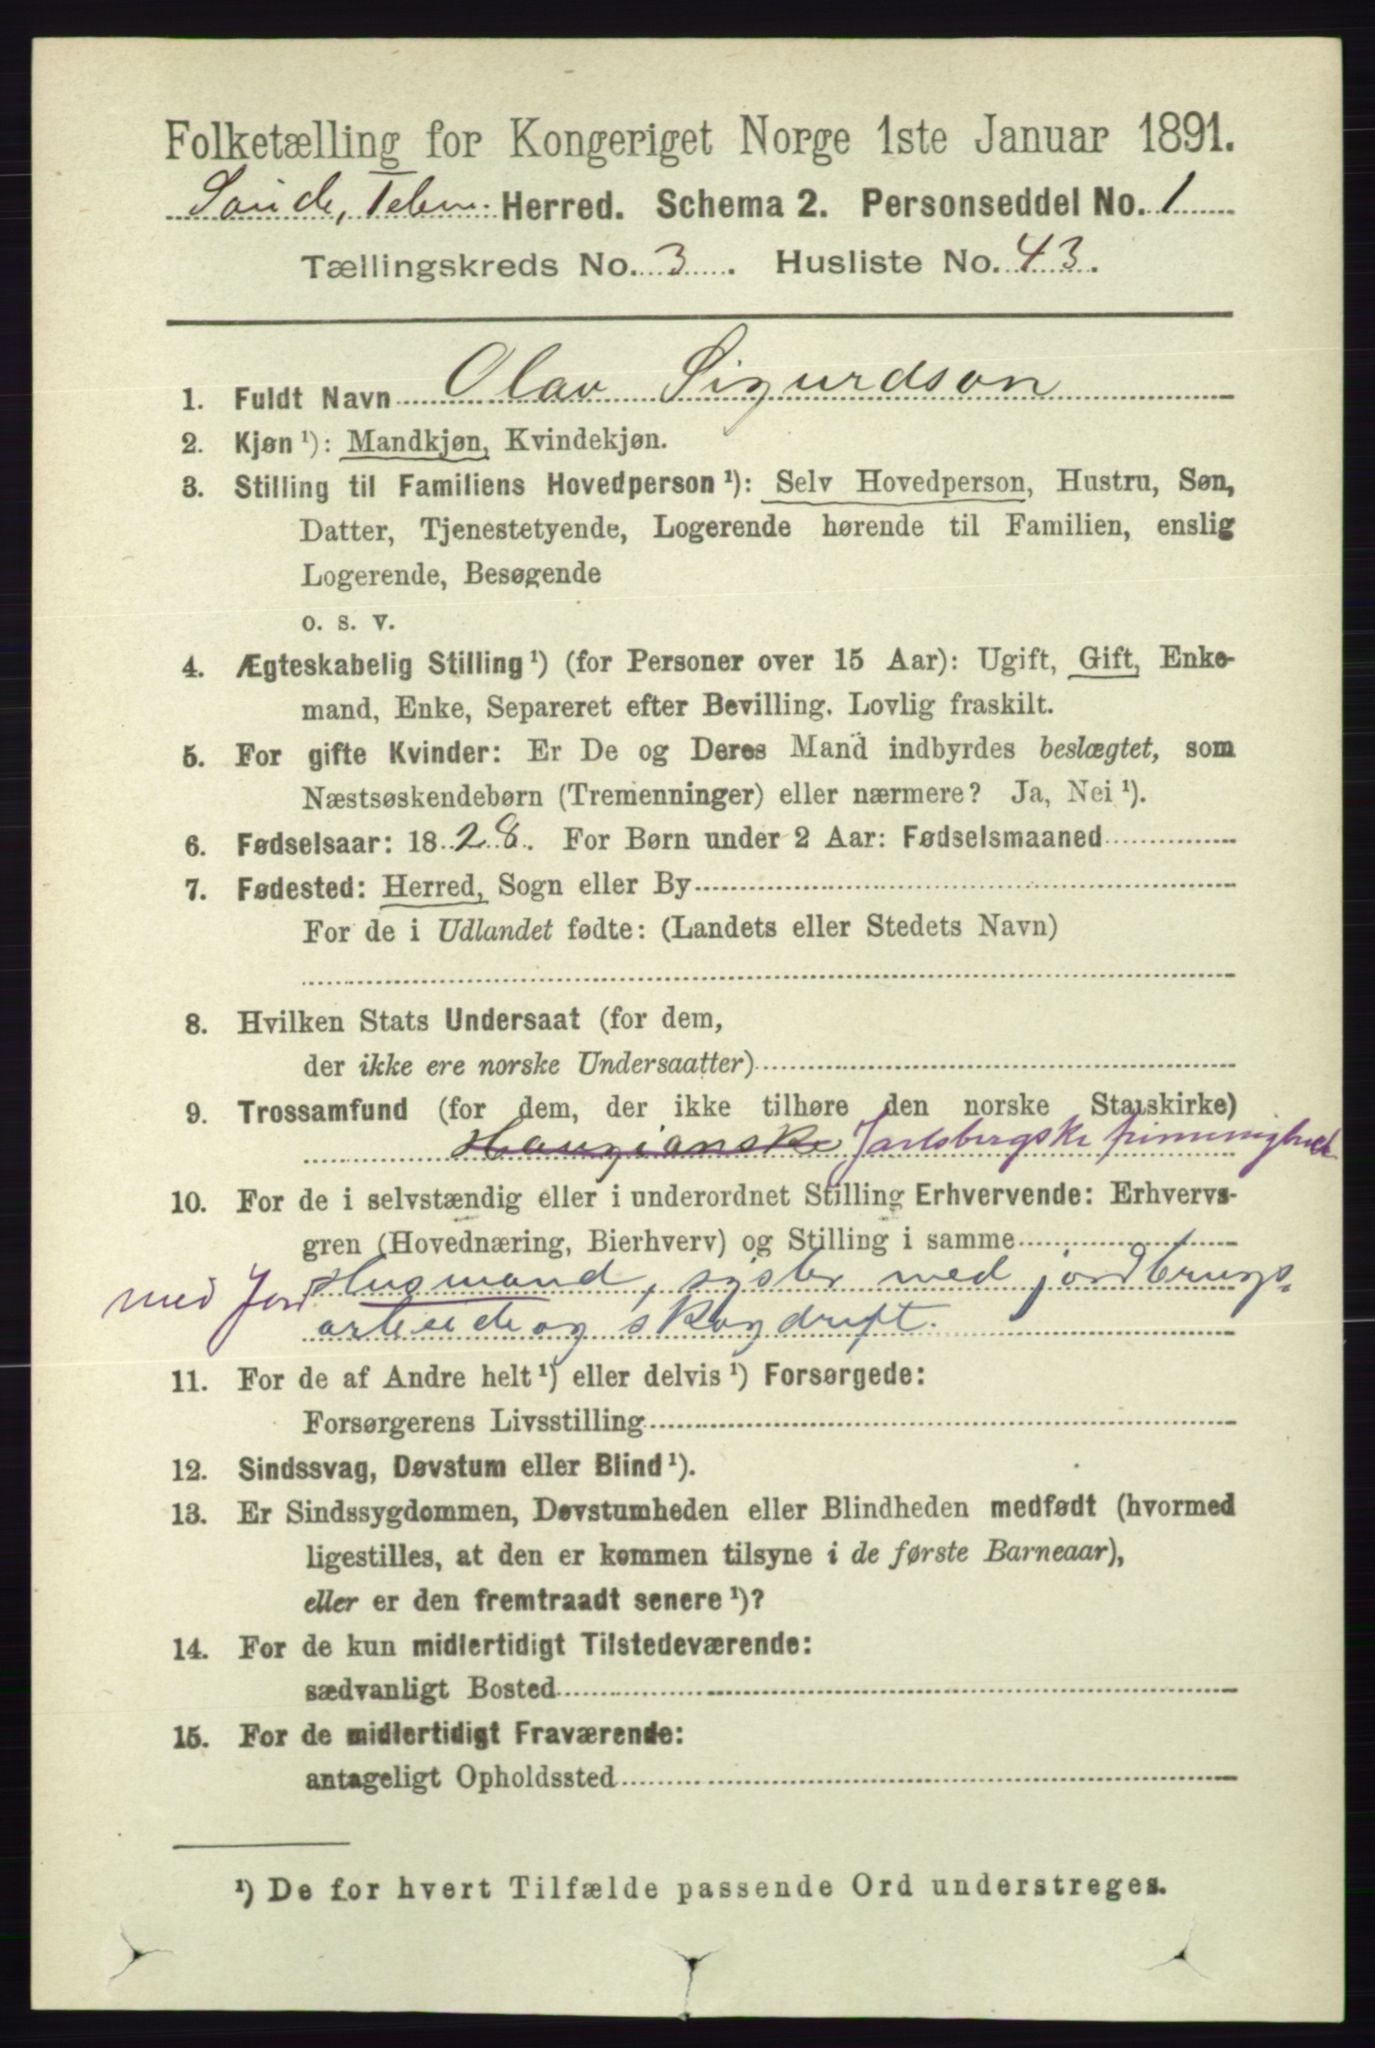 Folketælling for Kongeriget Norge 1ste Januar 1891.
Herred. Schema 2. Personseddel No. 1
Tællingskreds No. 3. Husliste No. 43.
1. Fuldt Navn Olav Sigurdson
2. Kjøn ¹): Mandkjøn, Kvindekjøn.
3. Stilling til Familiens Hovedperson ¹): Selv Hovedperson, Hustru, Søn,
Datter, Tjenestetyende, Logerende hørende til Familien, enslig
Logerende, Besøgende
o. s. v.
4. Ægteskabelig Stilling ¹) (for Personer over 15 Aar): Ugift, Gift, Enke-
mand, Enke, Separeret efter Bevilling. Lovlig fraskilt.
5. For gifte Kvinder: Er De og Deres Mand indbyrdes beslægtet, som
Næstsøskendebørn (Tremenninger) eller nærmere? Ja, Nei ¹).
6. Fødselsaar: 1828. For Børn under 2 Aar: Fødselsmaaned
7. Fødested: Herred, Sogn eller By
For de i Udlandet fødte: (Landets eller Stedets Navn)
8. Hvilken Stats Undersaat (for dem,
der ikke ere norske Undersaatter)
9. Trossamfund (for dem, der ikke tilhøre den norske Statskirke)
Haugianske Jarlsbergske frimenighed
10. For de i selvstændig eller i underordnet Stilling Erhvervende: Erhvervs-
gren (Hovednæring, Bierhverv) og Stilling i samme
med Jord Husmand, sysler med jordbrugs-
arbeide og skogdrift.
11. For de af Andre helt ¹) eller delvis ¹) Forsørgede:
Forsørgerens Livsstilling
12. Sindssvag, Døvstum eller Blind ¹).
13. Er Sindssygdommen, Døvstumheden eller Blindheden medfødt (hvormed
ligestilles, at den er kommen tilsyne i de første Barneaar),
eller er den fremtraadt senere ¹)?
14. For de kun midlertidigt Tilstedeværende:
sædvanligt Bosted
15. For de midlertidigt Fraværende:
antageligt Opholdssted
¹) De for hvert Tilfælde passende Ord understreges.